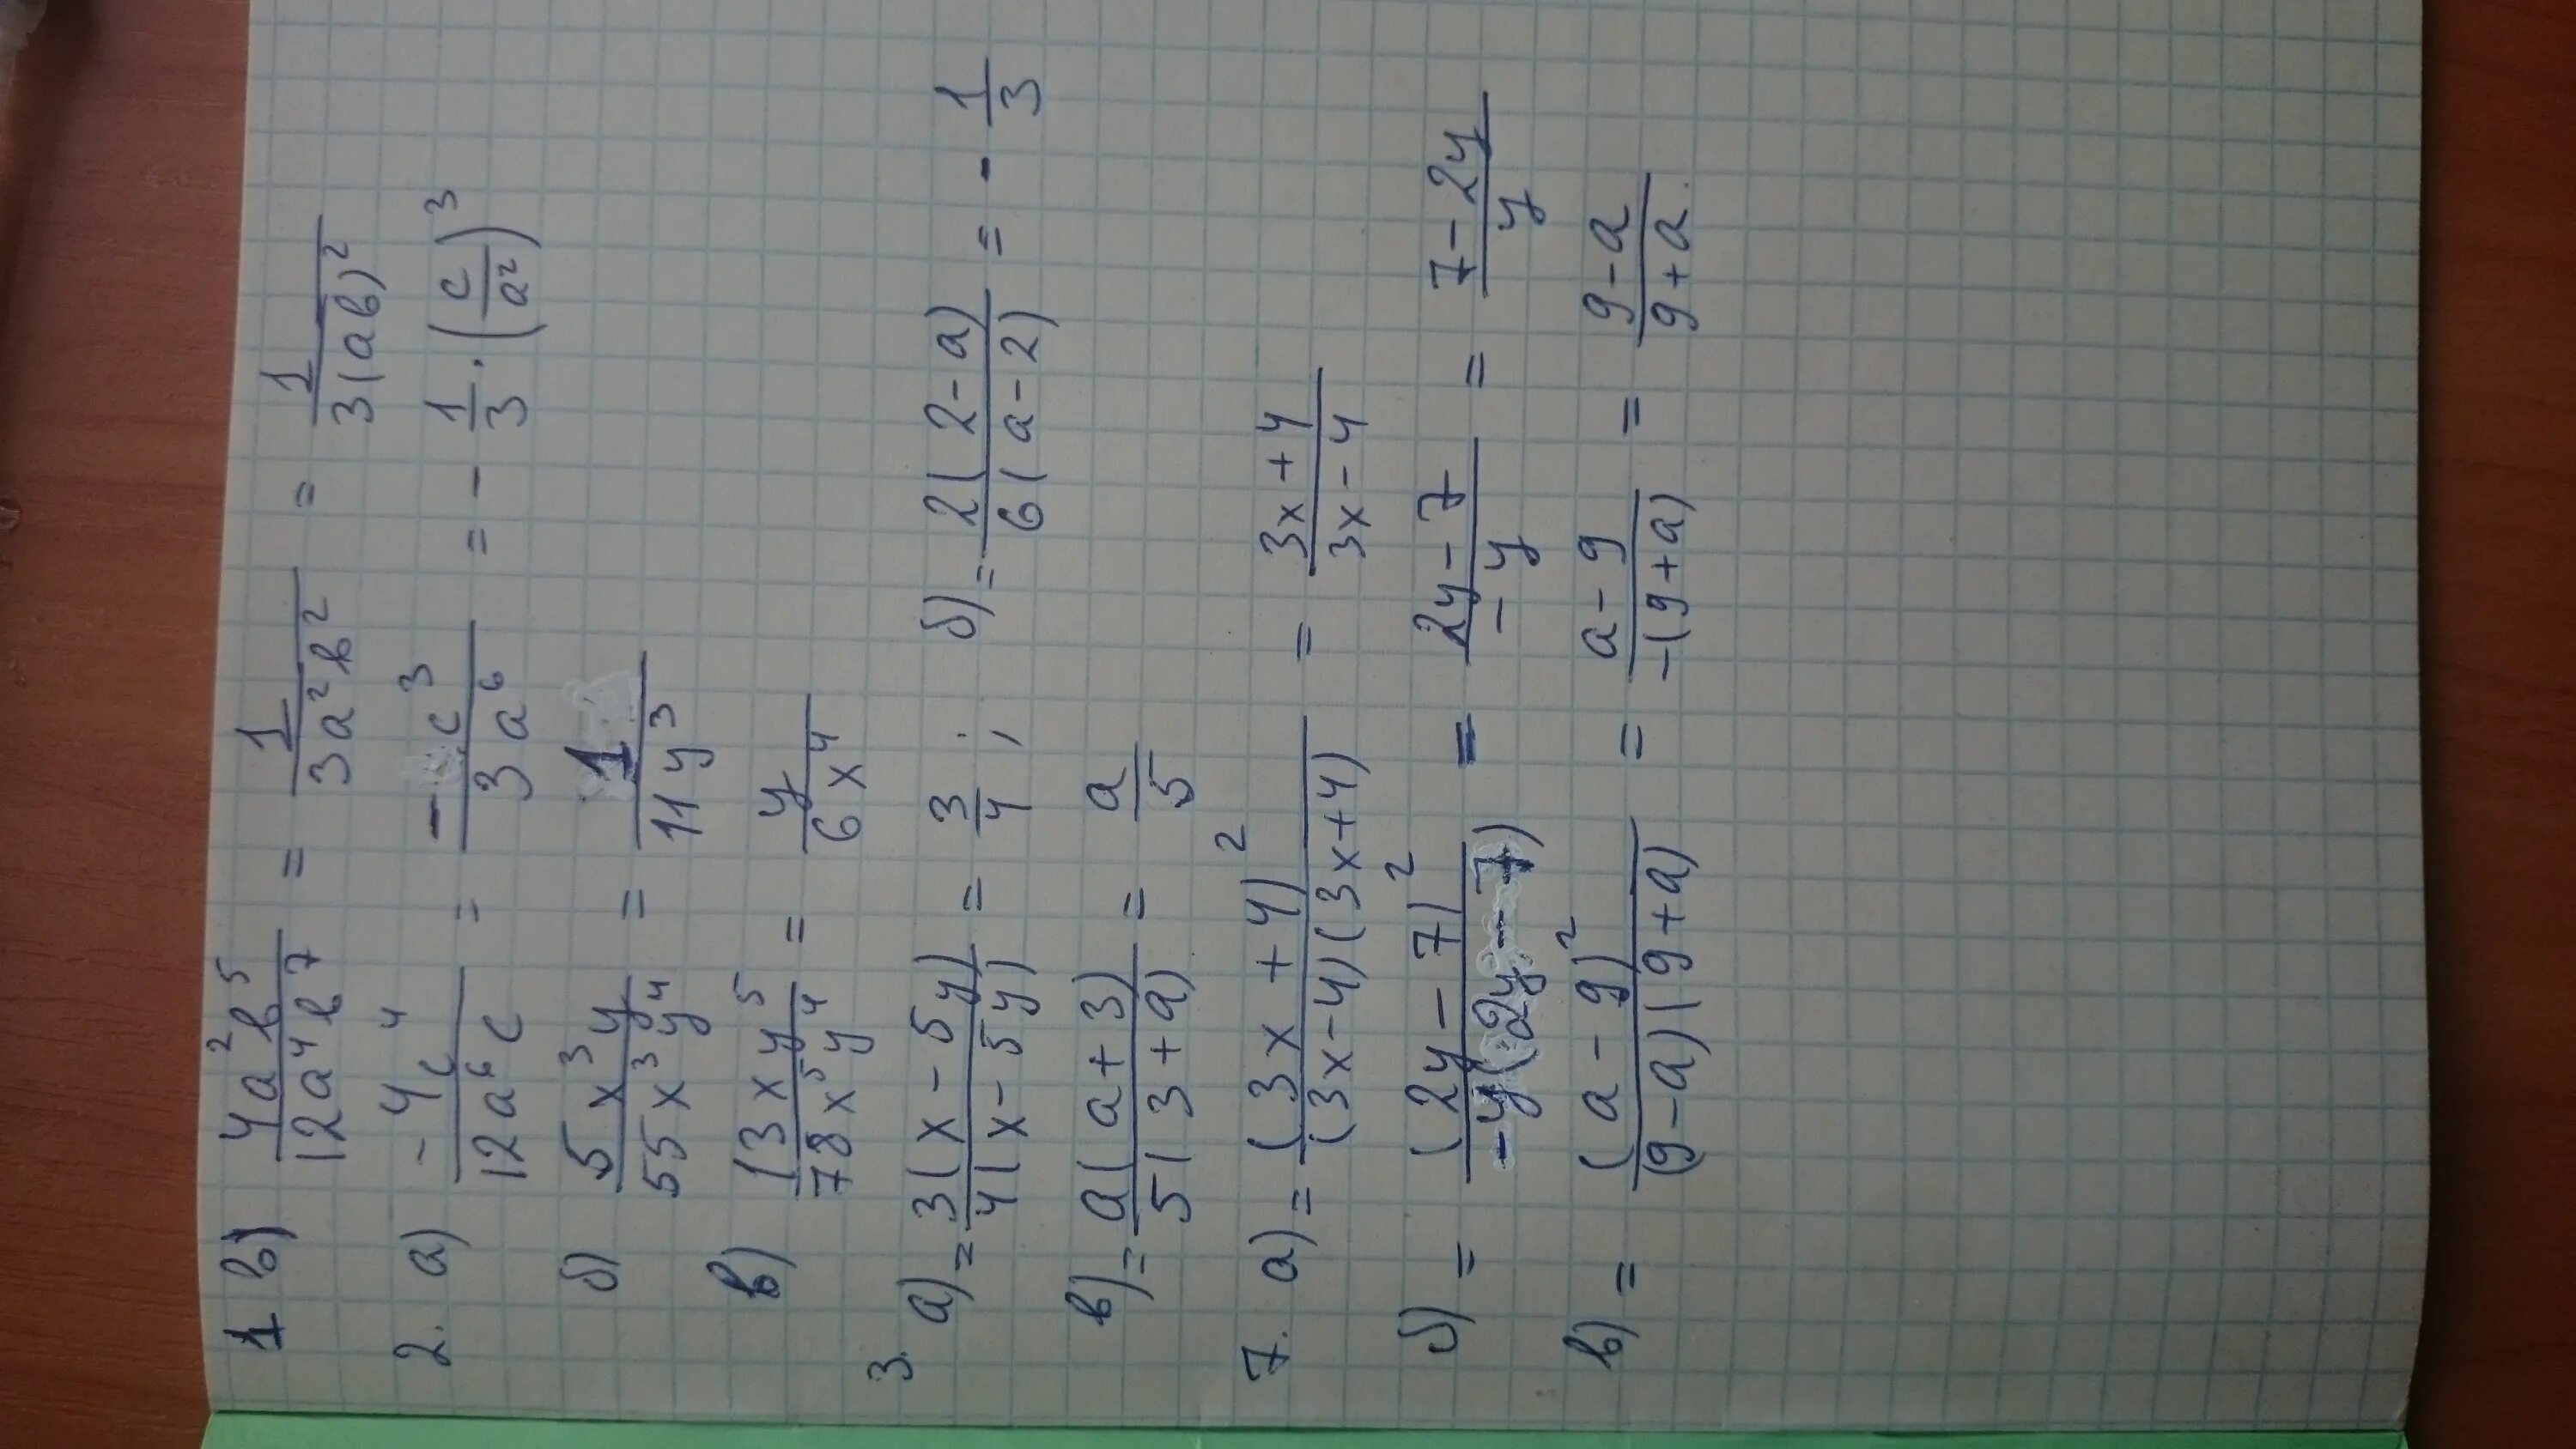 1 в) 4a²b⁵/12a⁴b⁷ = 1/3a²b² = 1/3(ab)²
2. а) -4c⁴/12a⁶c = -c³/3a⁶ = -1/3·(c/a²)³
б) 5x³y/55x³y⁴ = 1/11y³
в) 13xy⁵/78x⁵y⁴ = y/6x⁴
3. а) = 3(x-5y)/4(x-5y) = 3/4; б) = 2(2-a)/6(a-2) = -1/3
в) = a(a+3)/5(3+a) = a/5
7. а) = (3x+4)²/(3x-4)(3x+4) = 3x+4/3x-4
б) = (2y-7)²/-y(2y-7) = 2y-7/-y = 7-2y/y
в) = (a-9)²/(9-a)(9+a) = a-9/-(9+a) = 9-a/9+a.